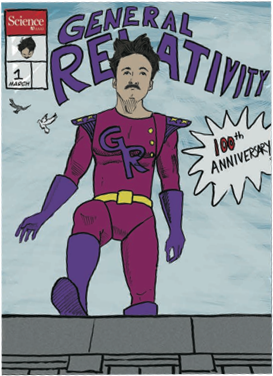 Science
1
MARCH
GENERAL
RELATIVITY
GR
100th
ANNIVERSARY